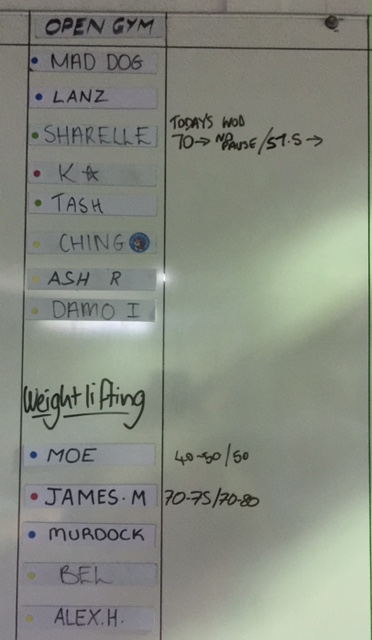 OPEN GYM
MAD DOG
LANZ
TODAY'S WOD
SHARELLE 70→ NO PAUSE/57.5→
K☆
TASH
CHING
ASH R
DAMO I
Weightlifting
MOE 40-50/50
JAMES.M 70-75/70-80
MURDOCK
BEL
ALEX.H.